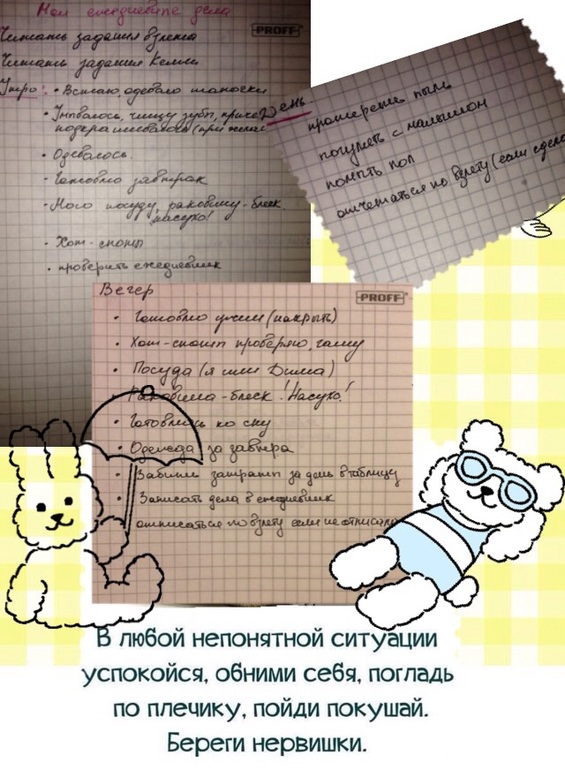 Мои ежедневные дела
PROFF
Читать задания взлета
Читать задания Келли
Утро:
• Встаю, одеваю тапочки
• Умываюсь, чищу зубы,
подкрашиваюсь (при
• Одеваюсь.
• Готовлю завтрак
• Мою посуду, раковину-блеск
насухо!
• Хот-споты
• проверить ежедневник
День
протереть пыль
погулять с малышом
помыть пол
отчитаться по взлету (если сдела
Вечер
PROFF
• Готовлю ужин (накрыть)
• Хот-споты проверяю, гашу
• Посуда (я или Дима)
• Раковина-блеск! Насухо!
• Готовлюсь ко сну
• Одежда за завтра
• Забиваем затраты за день в таблицу
• Записать дела в ежедневник
отписаться по взлету если не отписалась
В любой непонятной ситуации
успокойся, обними себя, погладь
по плечику, пойди покушай.
Береги нервишки.